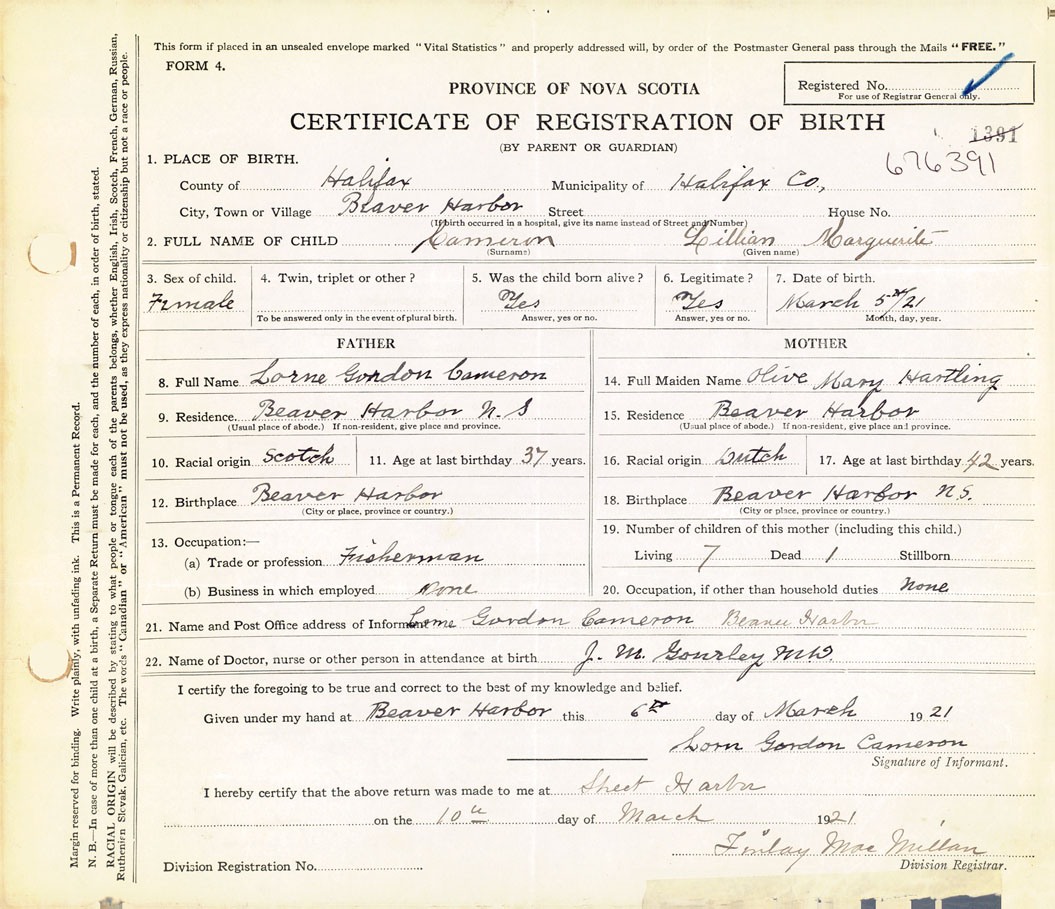 This form if placed in an unsealed envelope marked "Vital Statistics" and properly addressed will, by order of the Postmaster General pass through the Mails "FREE."
FORM 4.
Registered No.
For use of Registrar General only.
PROVINCE OF NOVA SCOTIA
CERTIFICATE OF REGISTRATION OF BIRTH
(BY PARENT OR GUARDIAN)
1391
676391
1. PLACE OF BIRTH.
County of Halifax Municipality of Halifax Co.,
City, Town or Village Beaver Harbor Street House No.
(If birth occurred in a hospital, give its name instead of Street and Number)
2. FULL NAME OF CHILD Cameron Lillian Marguerite
(Surname) (Given name)
3. Sex of child. 4. Twin, triplet or other? 5. Was the child born alive? 6. Legitimate? 7. Date of birth.
Female Yes Yes March 5th/21
To be answered only in the event of plural birth. Answer, yes or no. Answer, yes or no. Month, day, year.
FATHER
8. Full Name Lorne Gordon Cameron
9. Residence. Beaver Harbor N.S
(Usual place of abode.) If non-resident, give place and province.
10. Racial origin Scotch 11. Age at last birthday 37 years.
12. Birthplace Beaver Harbor
(City or place, province or country.)
13. Occupation:—
(a) Trade or profession Fisherman
(b) Business in which employed None
MOTHER
14. Full Maiden Name Olive Mary Hartling
15. Residence Beaver Harbor
(Usual place of abode.) If non-resident, give place and province.
16. Racial origin Dutch 17. Age at last birthday 42 years.
18. Birthplace Beaver Harbor N.S.
(City or place, province or country.)
19. Number of children of this mother (including this child.)
Living 7 Dead 1 Stillborn
20. Occupation, if other than household duties None
21. Name and Post Office address of Informant Lorne Gordon Cameron Beaver Harbor
22. Name of Doctor, nurse or other person in attendance at birth J. M. Gourley MD.
I certify the foregoing to be true and correct to the best of my knowledge and belief.
Given under my hand at Beaver Harbor this 6th day of March 1921
Lorn Gordon Cameron
Signature of Informant.
I hereby certify that the above return was made to me at Sheet Harbor
on the 10th day of March 1921
Finlay MacMillan
Division Registration No. Division Registrar.
Margin reserved for binding. Write plainly, with unfading ink. This is a Permanent Record.
N. B.—In case of more than one child at a birth, a Separate Return must be made for each, and the number of each, in order of birth, stated.
RACIAL ORIGIN will be described by stating to what people or tongue each of the parents belongs, whether English, Irish, Scotch, French, German, Russian,
Ruthenian Slovak, Galician, etc. The words "Canadian" or "American" must not be used, as they express nationality or citizenship but not a race or people.